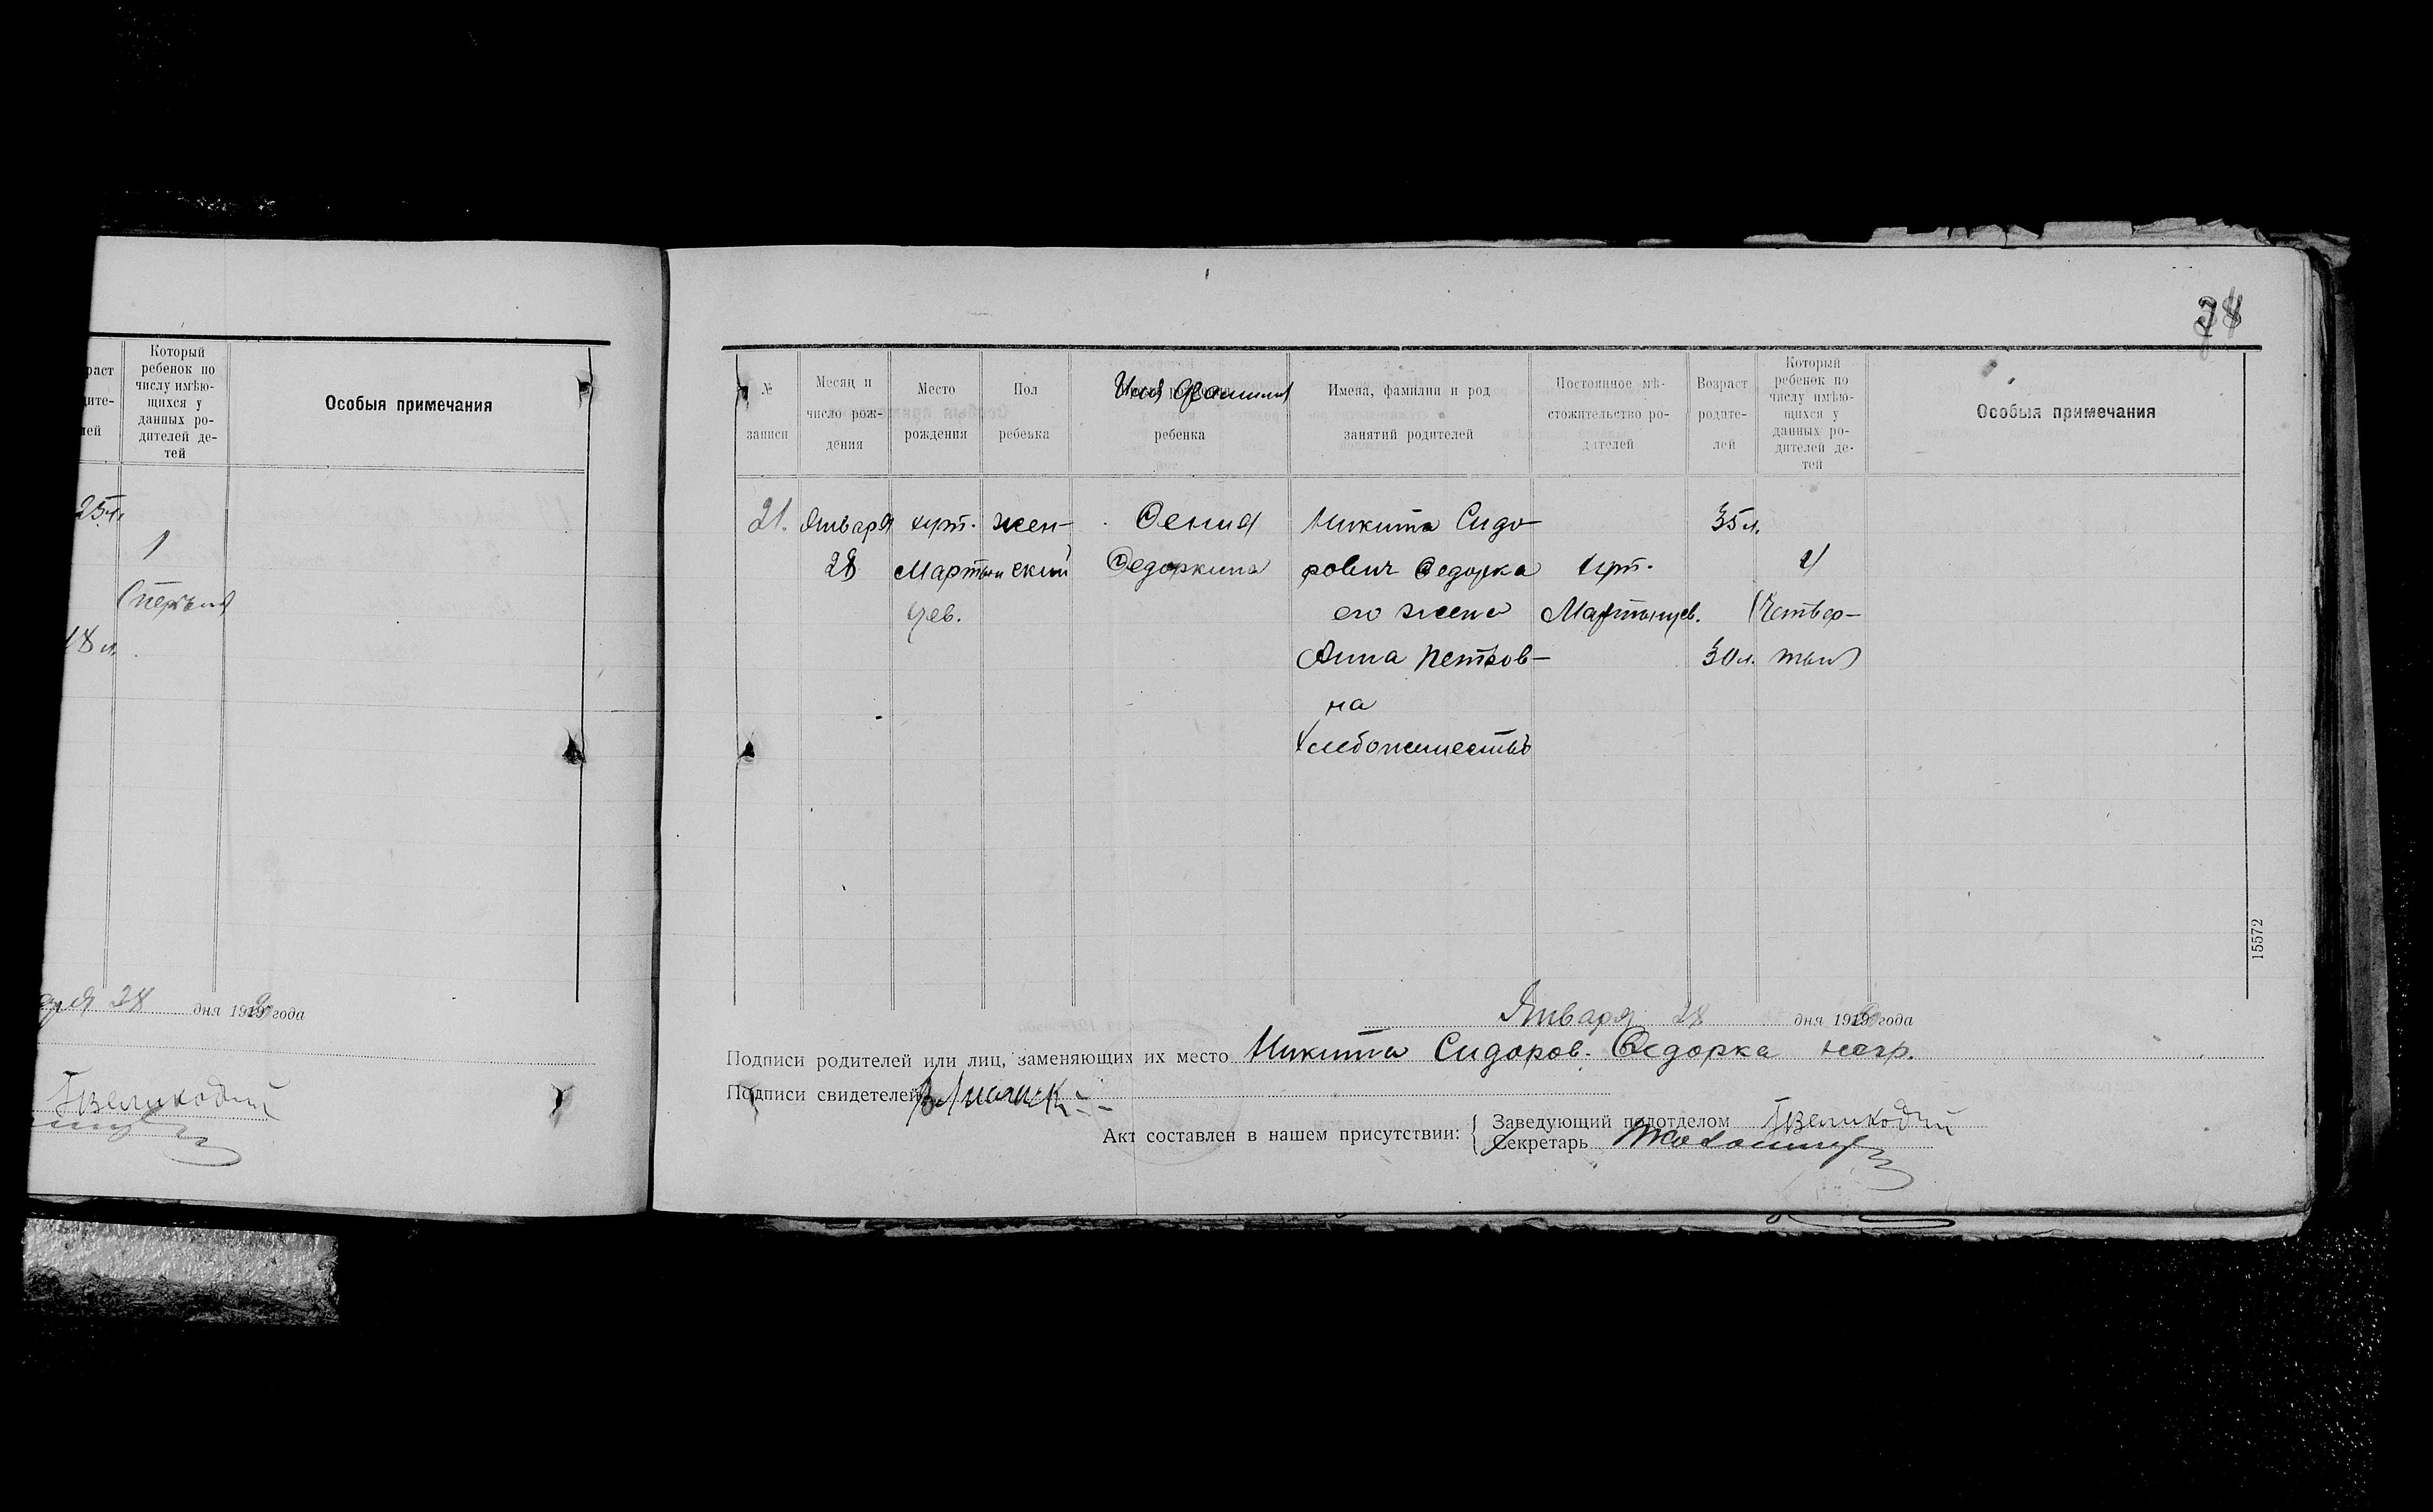 Который
ребенок по
числу имѣю-
щихся у
данных ро-
дителей де-
тей
раст
дите-
лей
Особыя примечания
25 л.
1
(первый)
18 л.
28 дня 1919 года
Великодий
28
№
записи
Месяц и
число рож-
дения
Место
рождения
Пол
ребенка
Имя фамилия
ребенка
Имена, фамилии и род
занятий родителей
Постоянное мѣ-
стожительство ро-
дителей
Возраст
родите-
лей
Который
ребенок по
числу имѣю-
щихся у
данных ро-
дителей де-
тей
Особыя примечания
21. Января хут. жен- Ѳения Никита Сидо- 35 л.
28 Мартын ский Ѳедоркина рович Ѳедорка хут. 4
цев. его жена Мартынцев. (Четвер-
Анна Петров- 30 л. тый)
на
Хлебопашество
15572
Января 28 дня 1919 года
Подписи родителей или лиц, заменяющих их место Никита Сидоров. Ѳедорка негр.
Подписи свидетелей
Акт составлен в нашем присутствии:
Заведующий подотделом Великодий
Секретарь